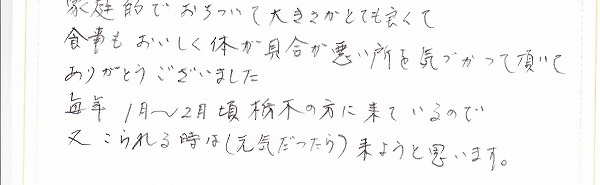 家庭的でおちついて大きさがとても良くて
食事もおいしく体が具合が悪い所を気づかって頂いて
ありがとうございました
毎年 1月～2月頃栃木の方に来ているので
又 こられる時は(元気だったら)来ようと思います。